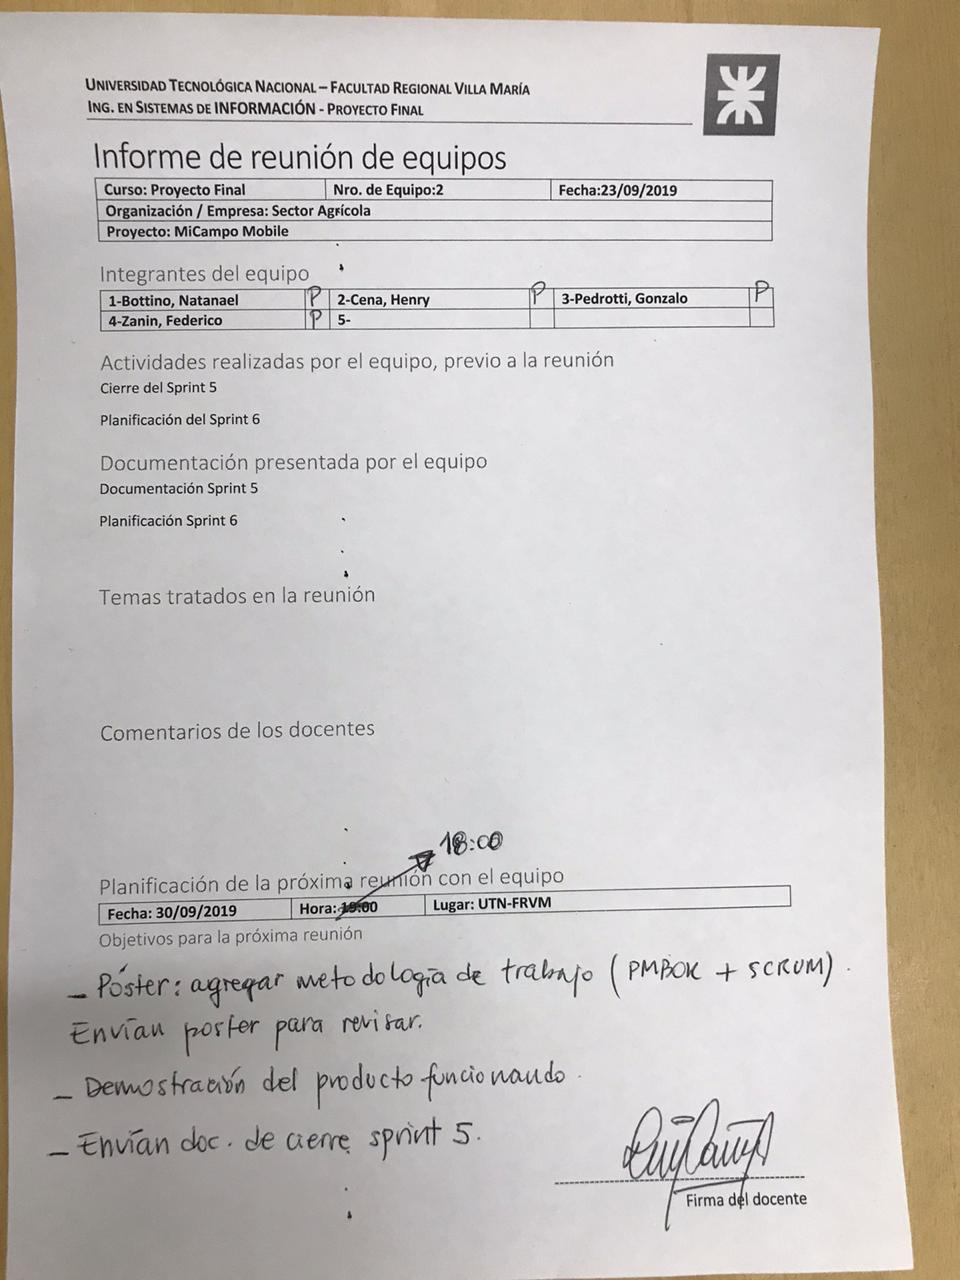 UNIVERSIDAD TECNOLÓGICA NACIONAL – FACULTAD REGIONAL VILLA MARÍA
ING. EN SISTEMAS DE INFORMACIÓN - PROYECTO FINAL
Informe de reunión de equipos
Curso: Proyecto Final Nro. de Equipo:2 Fecha:23/09/2019
Organización / Empresa: Sector Agrícola
Proyecto: MiCampo Mobile
Integrantes del equipo
1-Bottino, Natanael P 2-Cena, Henry P 3-Pedrotti, Gonzalo P
4-Zanin, Federico P 5-
Actividades realizadas por el equipo, previo a la reunión
Cierre del Sprint 5
Planificación del Sprint 6
Documentación presentada por el equipo
Documentación Sprint 5
Planificación Sprint 6
Temas tratados en la reunión
Comentarios de los docentes
18:00
Planificación de la próxima reunión con el equipo
Fecha: 30/09/2019 Hora: Lugar: UTN-FRVM
Objetivos para la próxima reunión
- Póster: agregar metodología de trabajo (PMBOK + SCRUM).
Envían poster para revisar.
- Demostración del producto funcionando.
- Envían doc. de cierre sprint 5.
Firma del docente